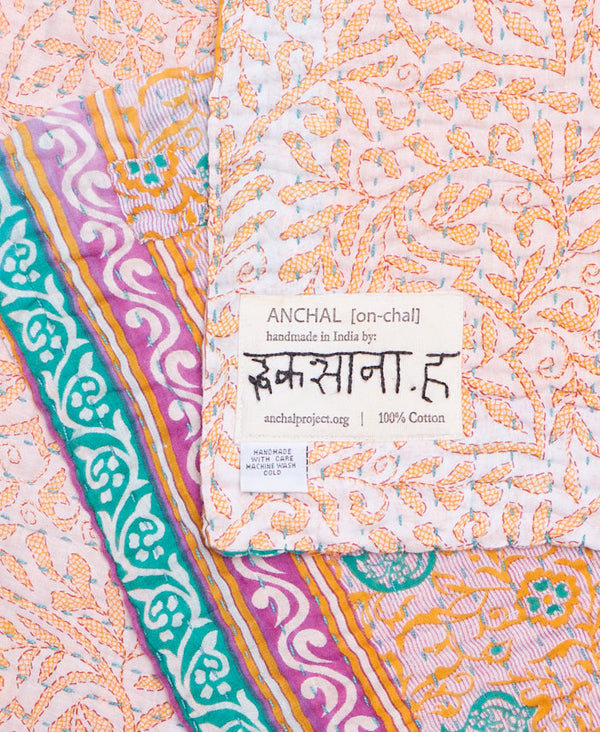 ANCHAL [on-chal]
handmade in India by:
इकसाना. ह
anchalproject.org | 100% Cotton
HANDMADE
WITH CARE
MACHINE WASH
COLD